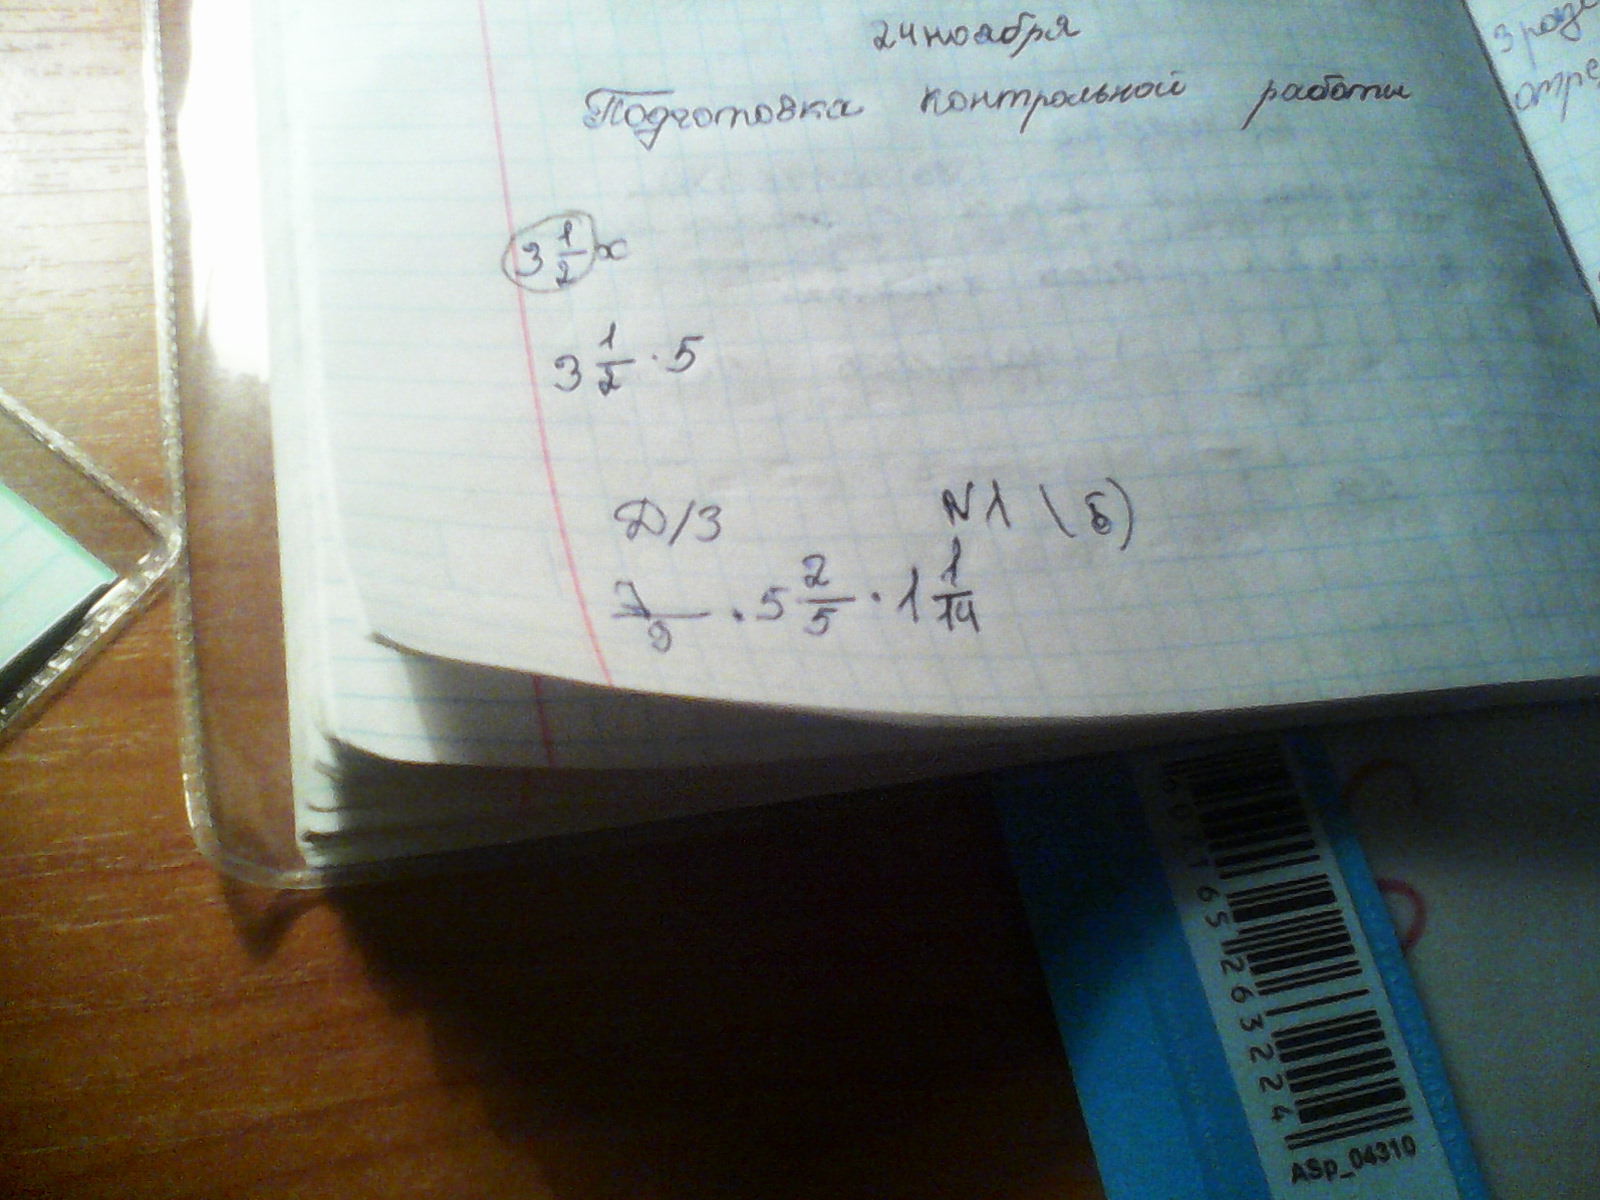 24 ноября
Подготовка контрольной работы
3 1/2 x
3 1/2 · 5
Д/З N1 (б)
7/9 · 5 2/5 · 1 1/14
3 
отре
65263224
ASp_04310